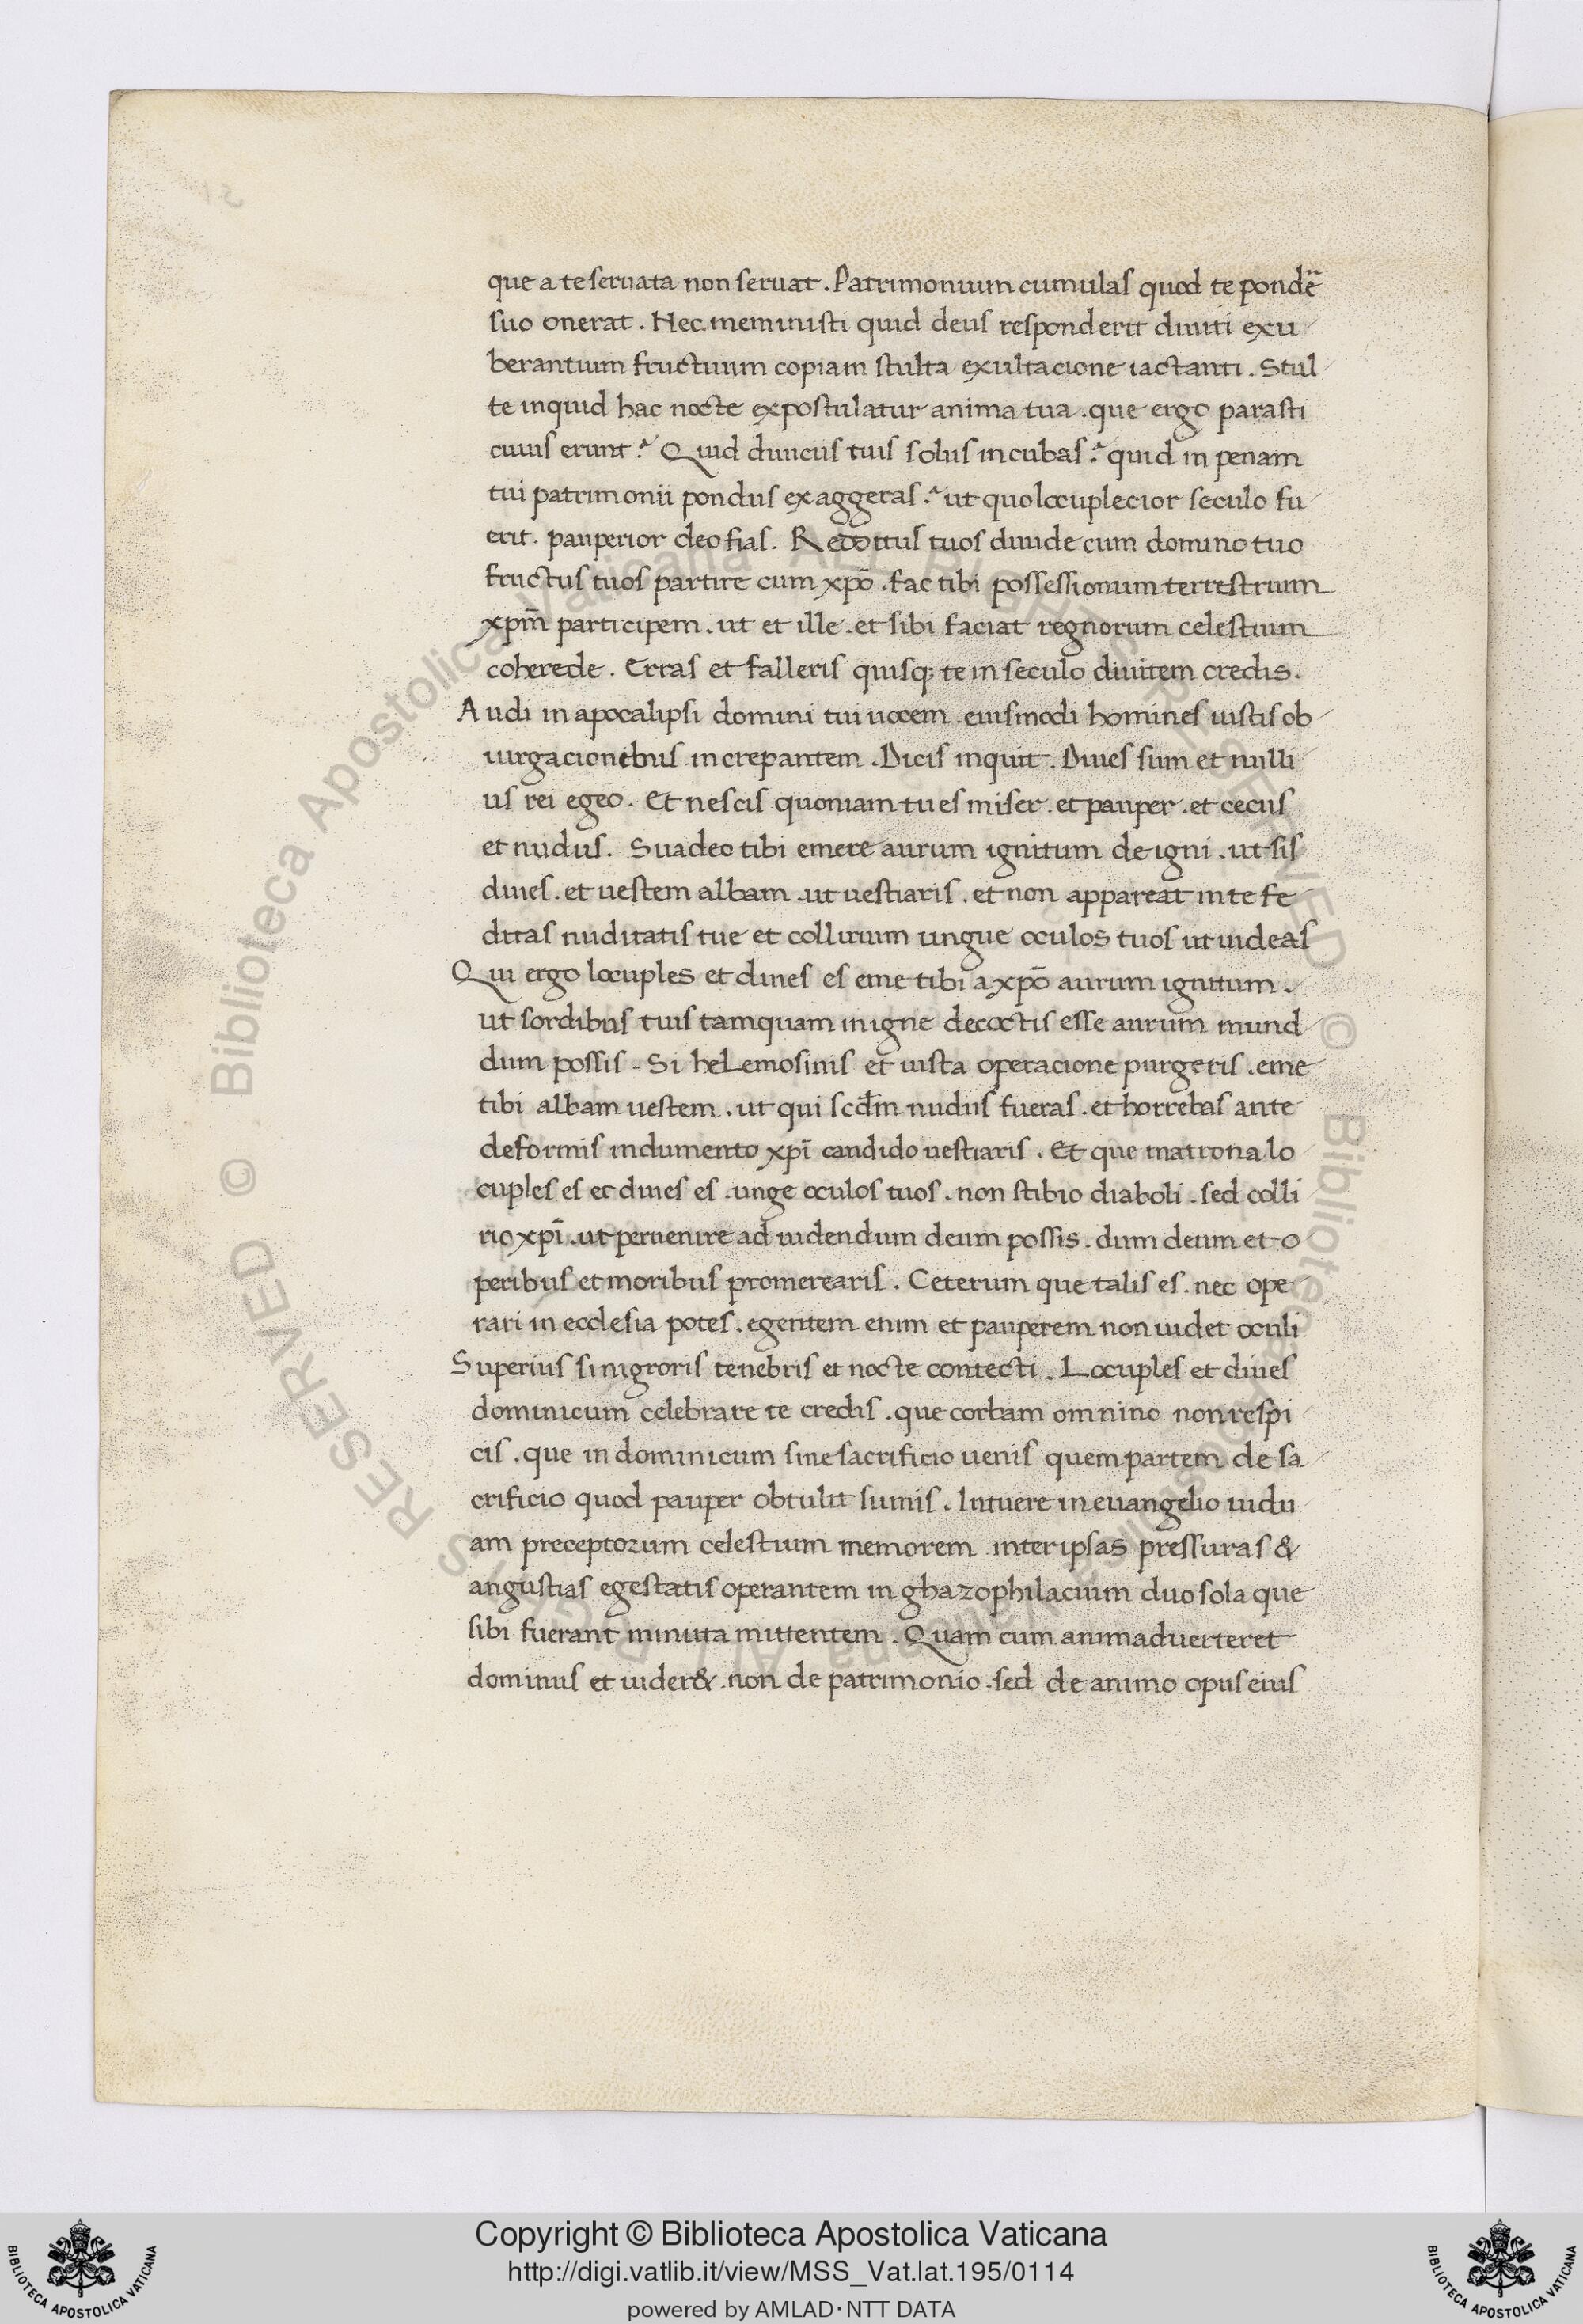 que a te seruata non seruat. Patrimonium cumulas quod te pondē
suo onerat. Nec meministi quid deus responderit diuiti exu
berantium fructuum copiam stulta exultacione iactanti. Stul
te inquid hac nocte expostulatur anima tua. que ergo parasti
cuius erunt? Quid diuiciis tuis solus incubas? quid in penam
tui patrimonii pondus exaggeras? ut quo locuplecior seculo fu
erit. pauperior deo fias. Redditus tuos diuide cum domino tuo
fructus tuos partire cum xpō. fac tibi possessionum terrestrium
xpm̄ participem. ut et ille. et sibi faciat regnorum celestium
coherede. Erras et falleris quisq; te in seculo diuitem credis.
Audi in apocalipsi domini tui uocem. eiusmodi homines iustis ob
iurgacionibus increpantem. Dicis inquit. Diues sum et nulli
us rei egeo. Et nescis quoniam tu es miser. et pauper. et cecus
et nudus. Suadeo tibi emere aurum ignitum de igni. ut sis
diues. et uestem albam. ut uestiaris. et non appareat in te fe
ditas nuditatis tue et collirium ungue oculos tuos ut uideas
Qui ergo locuples et diues es eme tibi a xpō aurum ignitum.
ut sordibus tuis tamquam in igne decoctis esse aurum mund
dum possis. Si heLemosinis et iusta operacione purgeris. eme
tibi albam uestem. ut qui scdm̄ nudus fueras. et horrebas ante
deformis indumento xpī candido uestiaris. Et que matrona lo
cuples es et diues es. unge oculos tuos. non stibio diaboli. sed colli
rio xpī. ut peruenire ad uidendum deum possis. dum deum et o
peribus et moribus promerearis. Ceterum que talis es. nec ope
rari in ecclesia potes. egentem enim et pauperem non uidet oculi
Superius si nigroris tenebris et nocte contecti. Locuples et diues
dominicum celebrare te credis. que corbam omnino non respi
cis. que in dominicum sine sacrificio uenis quem partem de sa
crificio quod pauper obtulit sumis. Intuere in euangelio uidu
am preceptorum celestium memorem inter ipsas pressuras &
angustias egestatis operantem in ghazophilacium duo sola que
sibi fuerant minuta mittentem. Quam cum animaduerteret
dominus et uider&. non de patrimonio. sed de animo opus eius
Copyright © Biblioteca Apostolica Vaticana
http://digi.vatlib.it/view/MSS_Vat.lat.195/0114
powered by AMLAD·NTT DATA